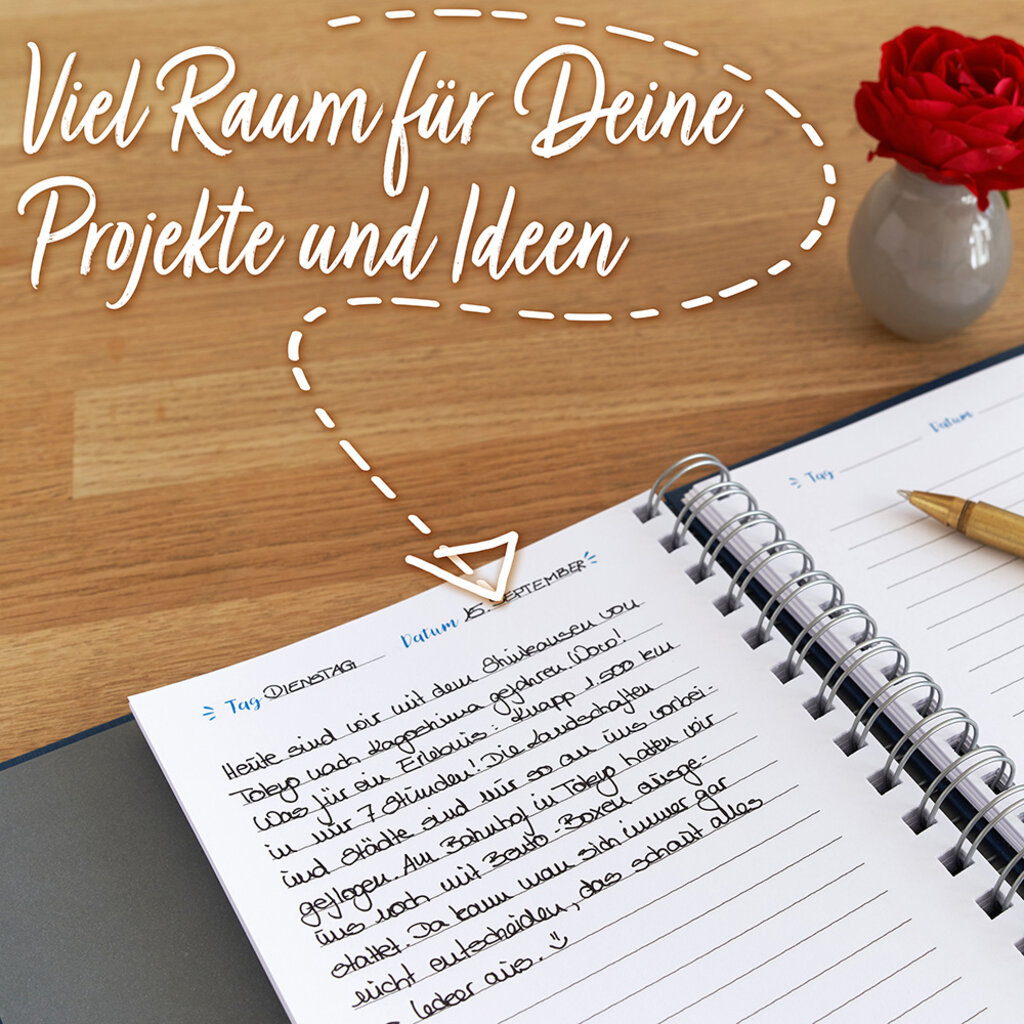 Viel Raum für Deine
Projekte und Ideen
Tag DIENSTAG Datum 15. SEPTEMBER
Heute sind wir mit dem Shinkansen von
Tokyo nach Kagoshima gefahren. Wow!
Was für ein Erlebnis: Knapp 1.500 km
in nur 7 Stunden! Die Landschaften
und Städte sind nur so an uns vorbei-
geflogen. Am Bahnhof in Tokyo hatten wir
uns noch mit Bento-Boxen ausge-
stattet. Da kann man sich immer gar
nicht entscheiden, das schaut alles
lecker aus. :)
Tag Datum